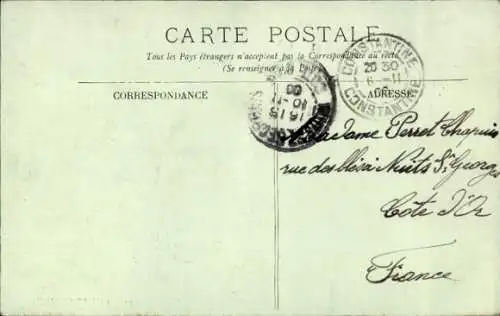 CARTE POSTALE
Tous les Pays étrangers n'acceptent pas la Correspondance au recto
(Se renseigner à la Poste)
CORRESPONDANCE
ADRESSE
CONSTANTINE
20 30
6 - 11
CONSTANTINE
Madame Perret Chapuis
rue des Nuits St Georges
Côte d'Or
France